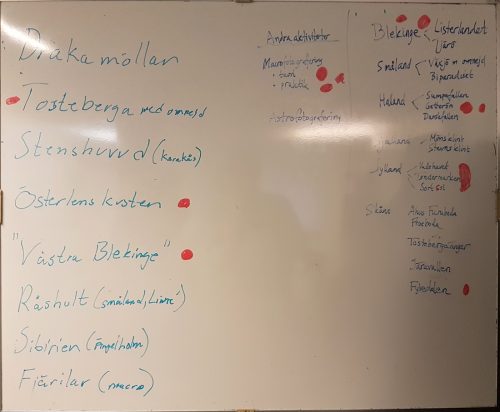 Drakamöllan
Tosteberga med omnejd
Stenshuvud (karakås)
Österlens kusten
"Västra Blekinge"
Råshult (småland, Linné)
Sibirien (Ängelholm)
Fjärilar (macro)
Andra aktiviteter
Macrofotografering
• teori
• praktik
Astrofotografering
Blekinge
Listerlandet
Tjärö
Småland
Växjö m omnejd
Biparadiset
Halland
Sumpafallen
Getterön
Danska fallen
Själland
Møns klint
Stevns klint
Jylland
Vadehavet
Sort Sol
Skåne
Fyledalen